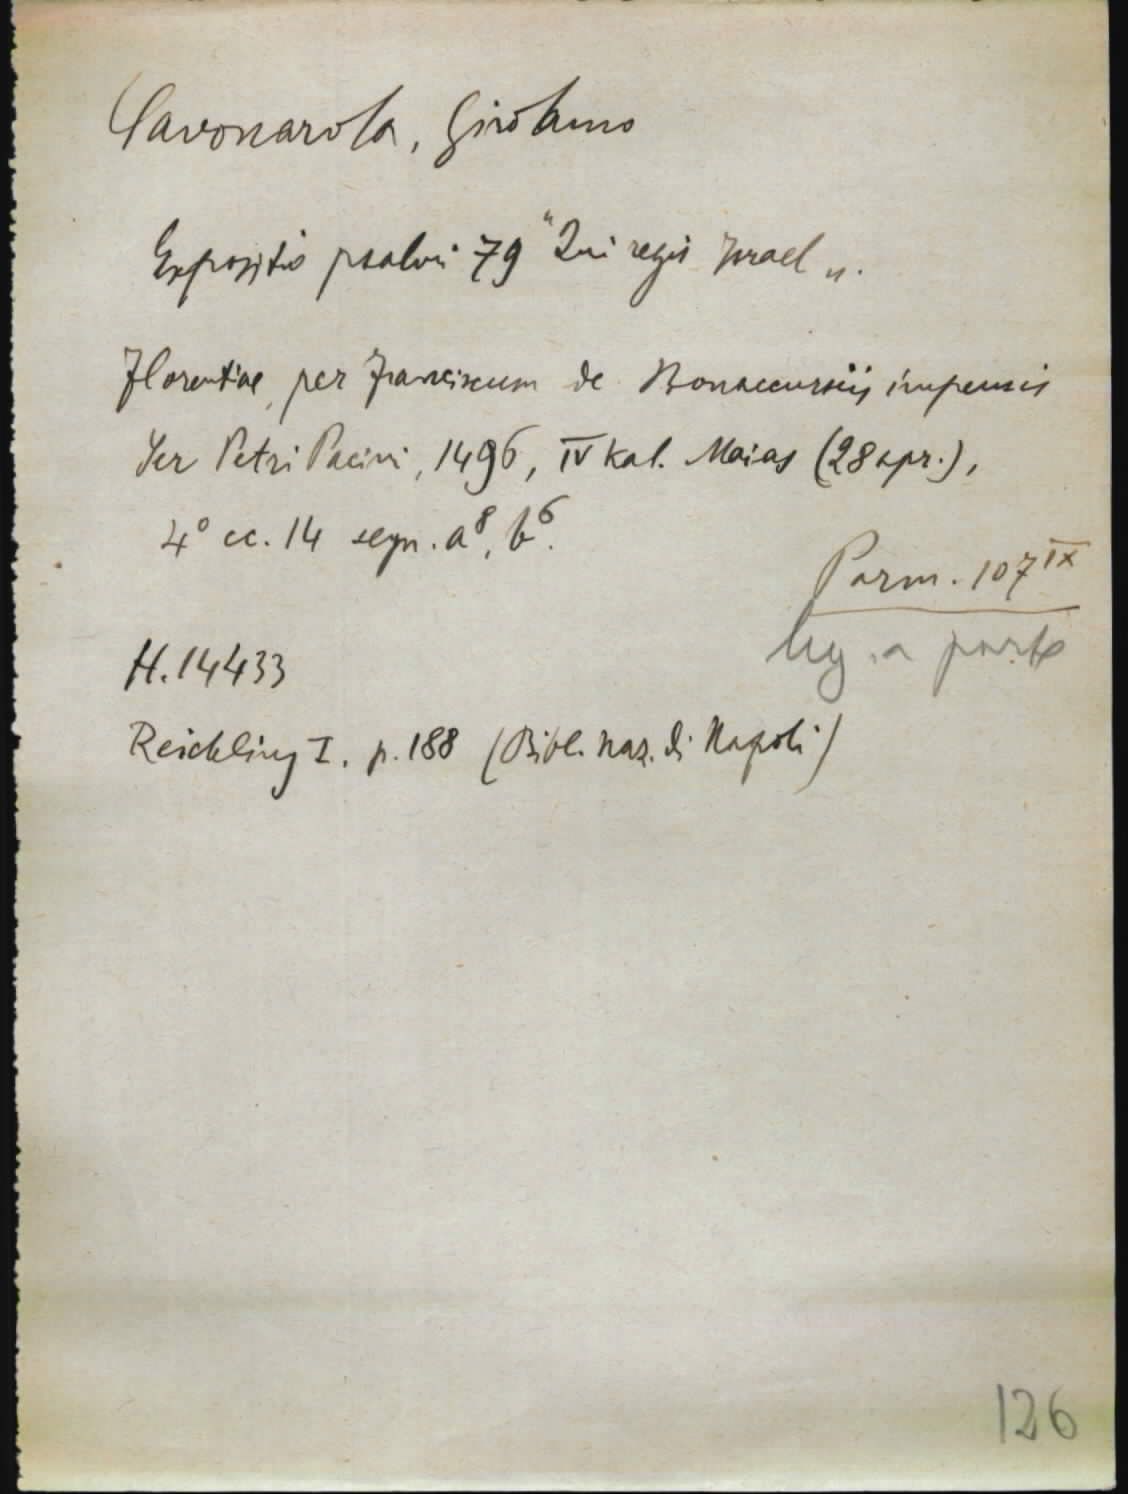 Savonarola, Girolamo
Expositio psalmi 79 "Qui regis Israel".
Florentiae, per Franciscum de Bonaccursiis impensis
Ser Petri Pacini, 1496, IV kal. Maias (28 apr.),
4° cc. 14 segn. a⁸, b⁶.
Parm. 107 IX
leg. a parte
H. 14433
Reichling I. p. 188 (Bibl. Naz. di Napoli)
126